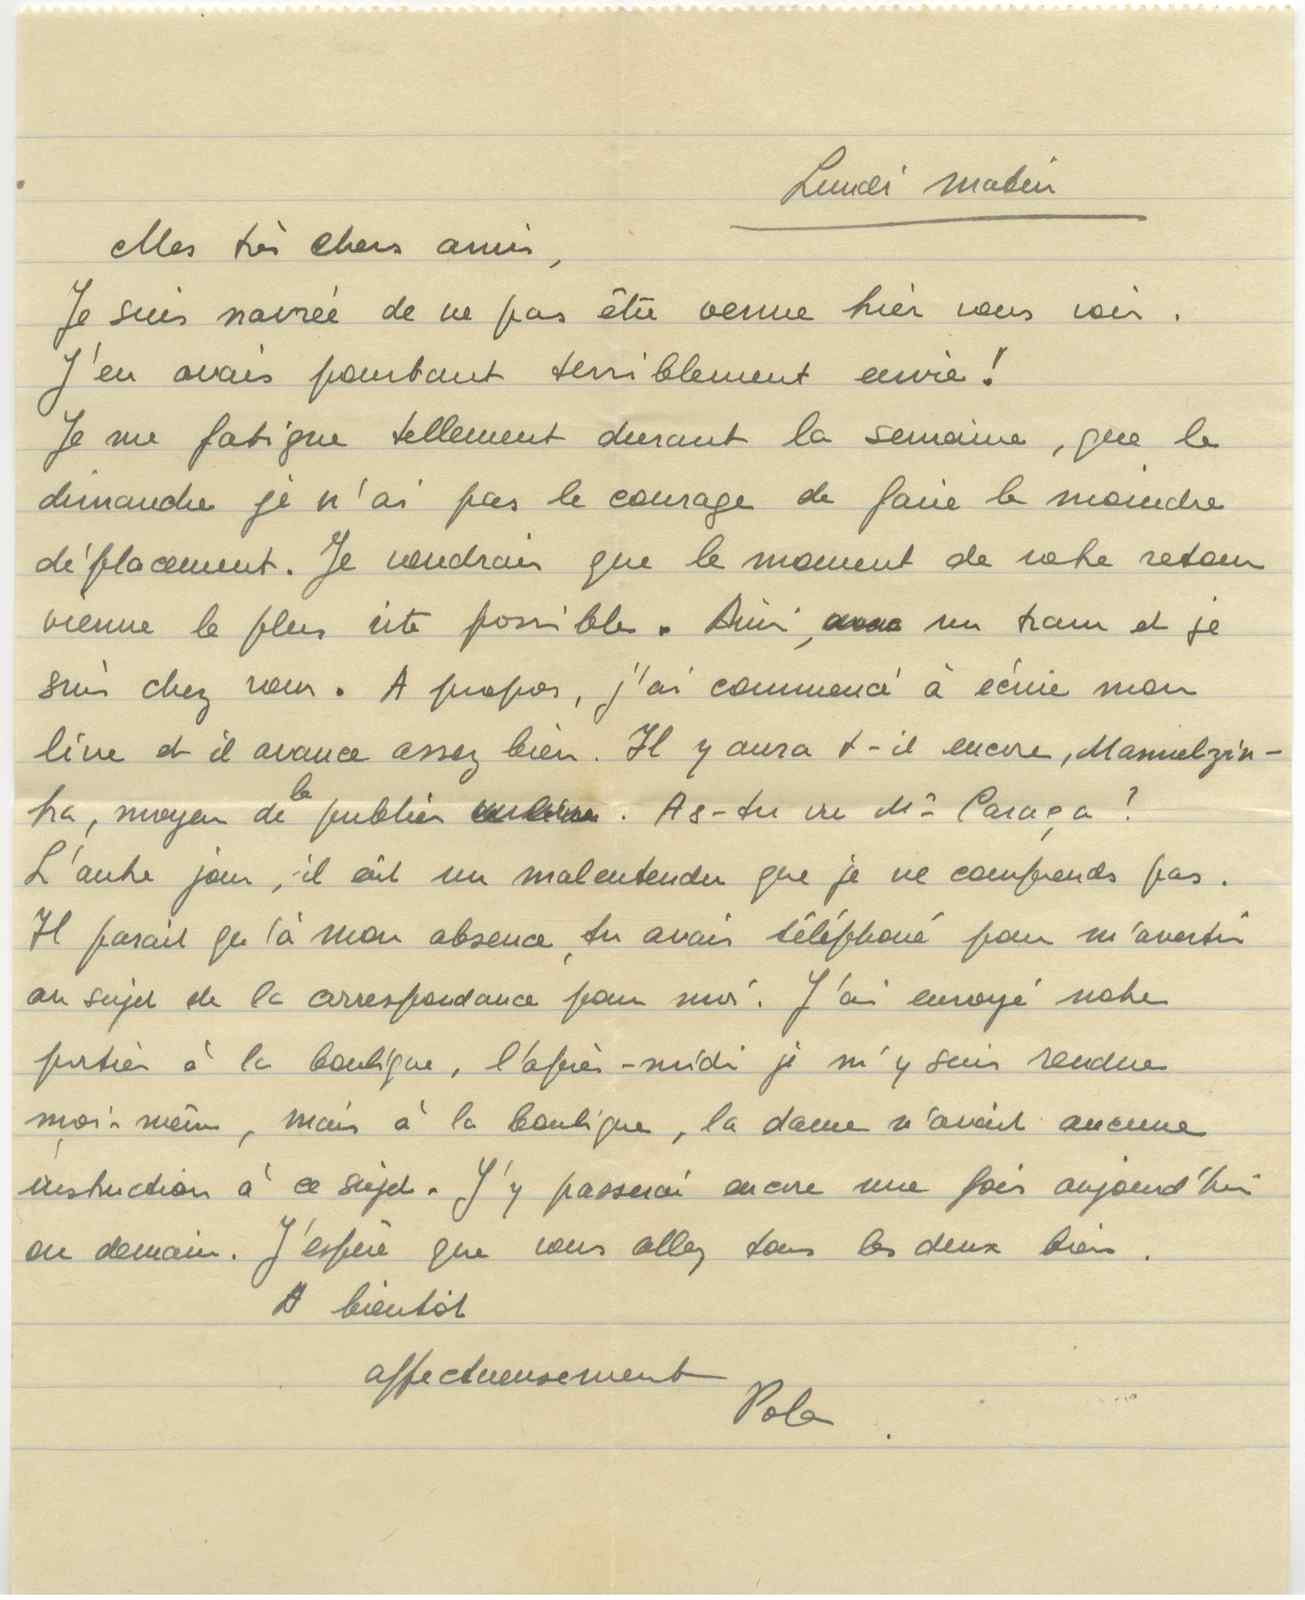 Lundi matin
Mes très chers amis,
Je suis navrée de ne pas être venue hier vous voir.
J'en avais pourtant terriblement envie!
Je me fatigue tellement durant la semaine, que le
dimanche je n'ai pas le courage de faire le moindre
déplacement. Je voudrais que le moment de votre retour
vienne le plus vite possible. un tram et je
suis chez vous. A propos, j'ai commencé à écrire mon
livre et il avance assez bien. Il y aura t-il encore, Manuelzin-
ha, moyen de le publier . As-tu vu Mr Caraça?
L'autre jour, il eût un malentendu que je ne comprends pas.
Il parait qu'à mon absence, tu avais téléphoné pour m'avertir
au sujet de la correspondance pour moi. J'ai envoyé notre
portier à la boutique, l'après-midi je m'y suis rendue
moi-même, mais à la boutique, la dame n'avait aucune
instruction à ce sujet. J'y passerai encore une fois aujourd'hui
ou demain. J'espère que vous allez tous les deux bien.
A bientôt
affectueusement
Pola